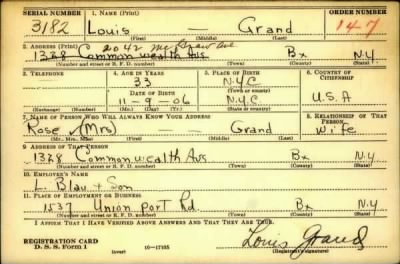 SERIAL NUMBER 1. NAME (Print) ORDER NUMBER
3182 Louis — Grand 147
(First) (Middle) (Last)
2042 McGraw Ave
2. ADDRESS (Print)
1328 Commonwealth Ave Bx N.Y.
(Number and street or R. F. D. number) (Town) (County) (State)
3. TELEPHONE 4. AGE IN YEARS 5. PLACE OF BIRTH 6. COUNTRY OF CITIZENSHIP
33 N.Y.C
DATE OF BIRTH (Town or county)
11-9-06 N.Y.C U.S.A
(Exchange) (Number) (Mo.) (Day) (Yr.) (State or country)
7. NAME OF PERSON WHO WILL ALWAYS KNOW YOUR ADDRESS 8. RELATIONSHIP OF THAT PERSON
Rose (Mrs) — Grand Wife
(Mr., Mrs., Miss) (First) (Middle) (Last)
9. ADDRESS OF THAT PERSON
1328 Commonwealth Avs Bx N.Y
(Number and street or R. F. D. number) (Town) (County) (State)
10. EMPLOYER'S NAME
L. Blau + Son
11. PLACE OF EMPLOYMENT OR BUSINESS
1537 Union port Rd Bx N.Y
(Number and street or R. F. D. number) (Town) (County) (State)
I AFFIRM THAT I HAVE VERIFIED ABOVE ANSWERS AND THAT THEY ARE TRUE.
REGISTRATION CARD Louis Grand
D. S. S. Form 1 (over) 16—17105 (Registrant's signature)